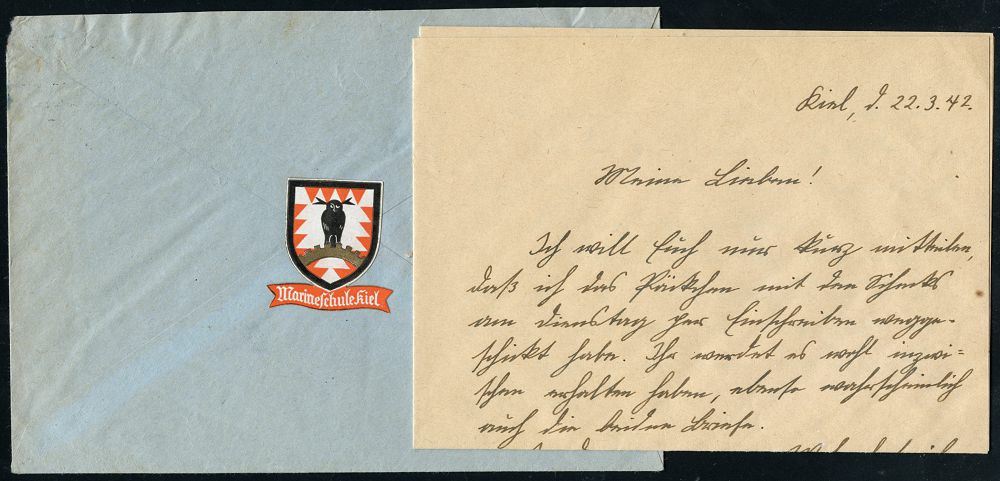 Marineschule Kiel
Kiel, d. 22.3.42.
Meine Lieben!
Ich will Euch nur kurz mitteilen,
daß ich das Päckchen mit den Schecks
am Dienstag per Einschreiben wegge-
schickt habe. Ihr werdet es wohl inzwi-
schen erhalten haben, ebenso wahrscheinlich
auch die beiden Briefe.